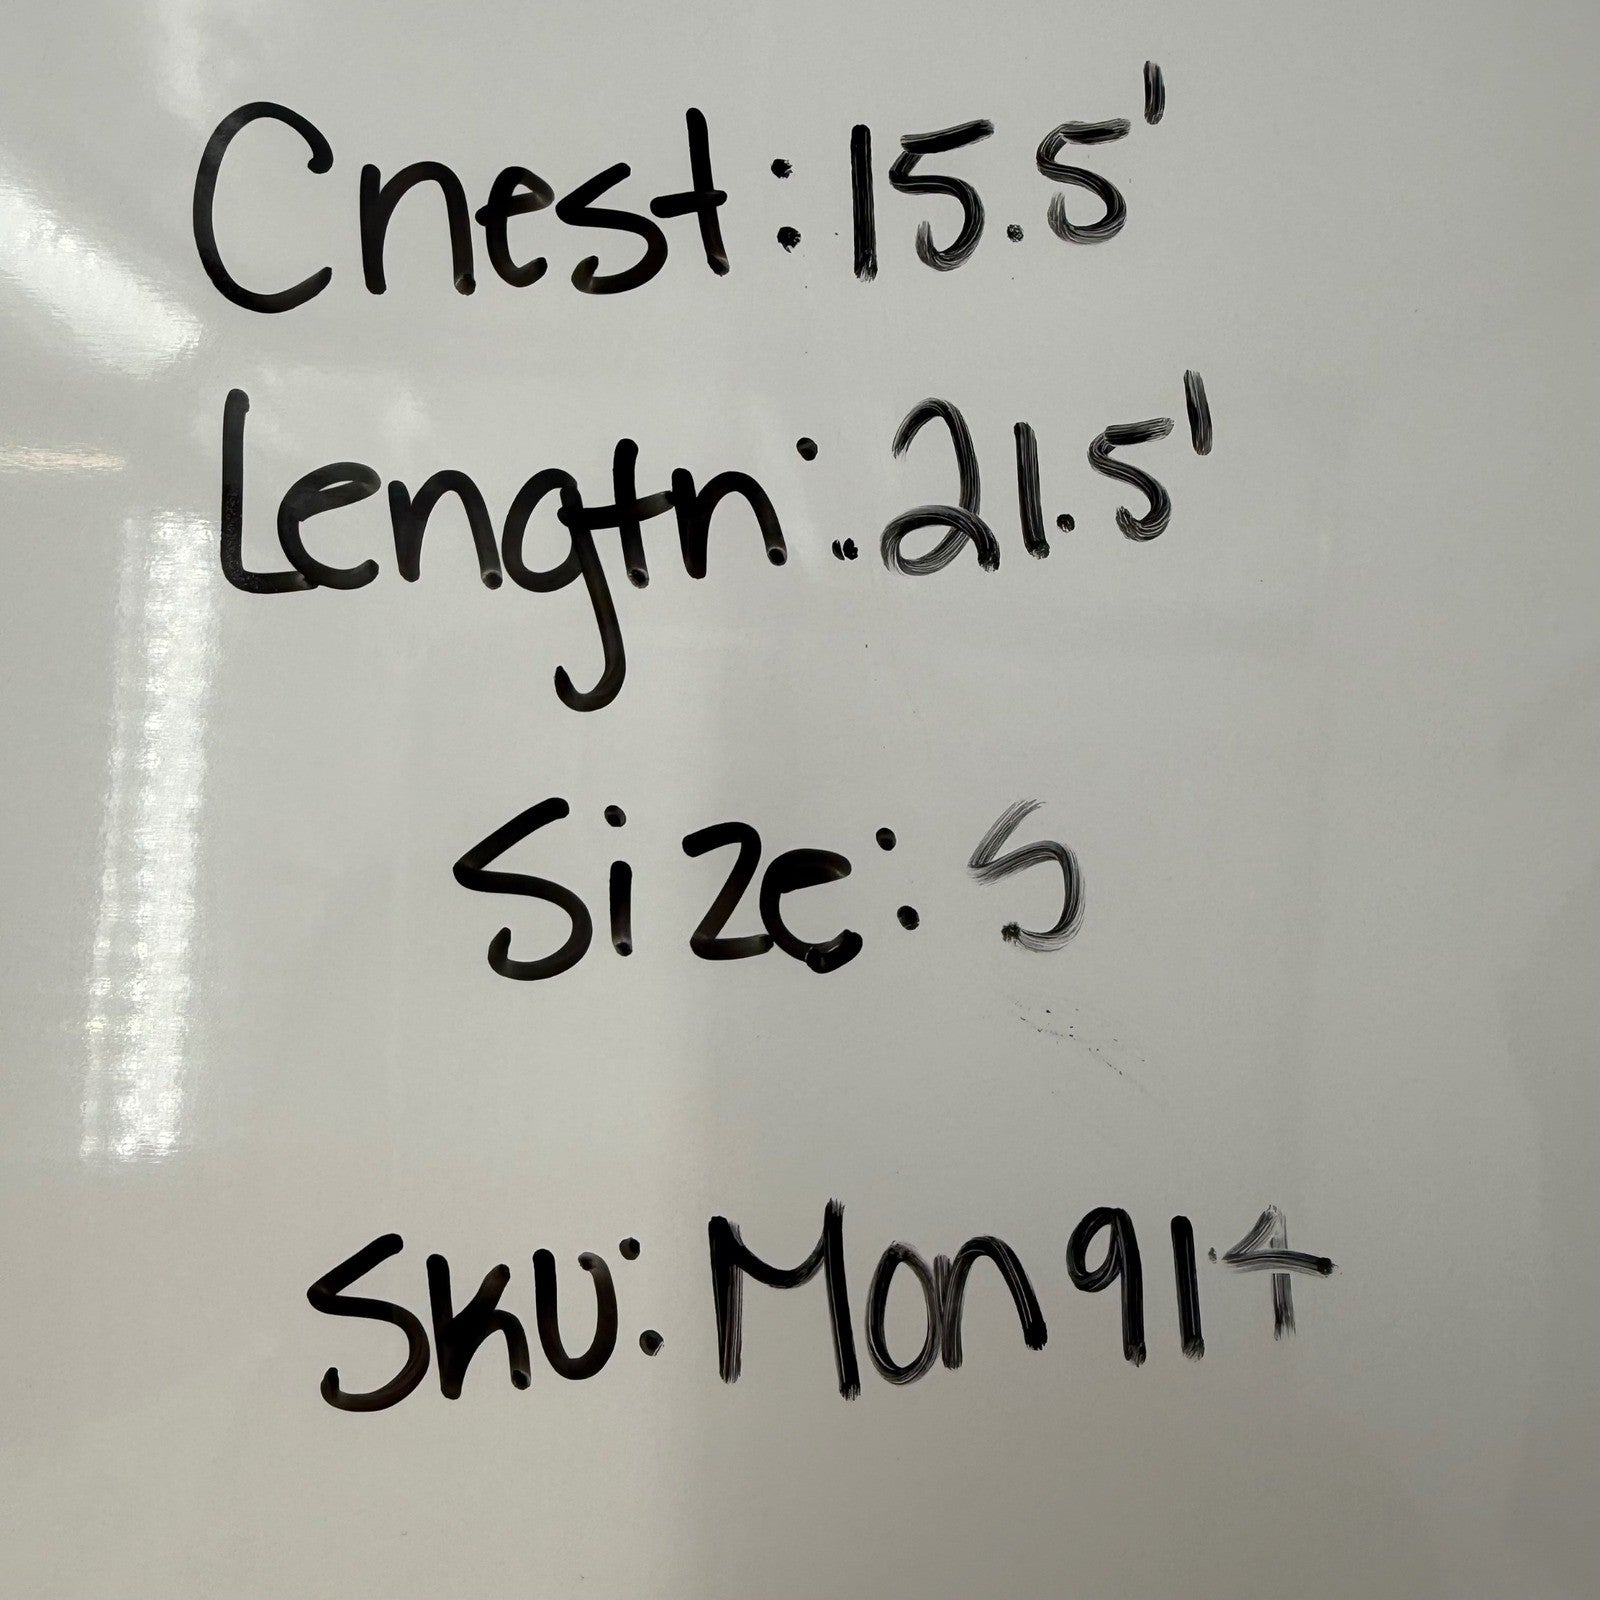 Chest: 15.5'
Length: 21.5'
Size: S
SKU: Mon914